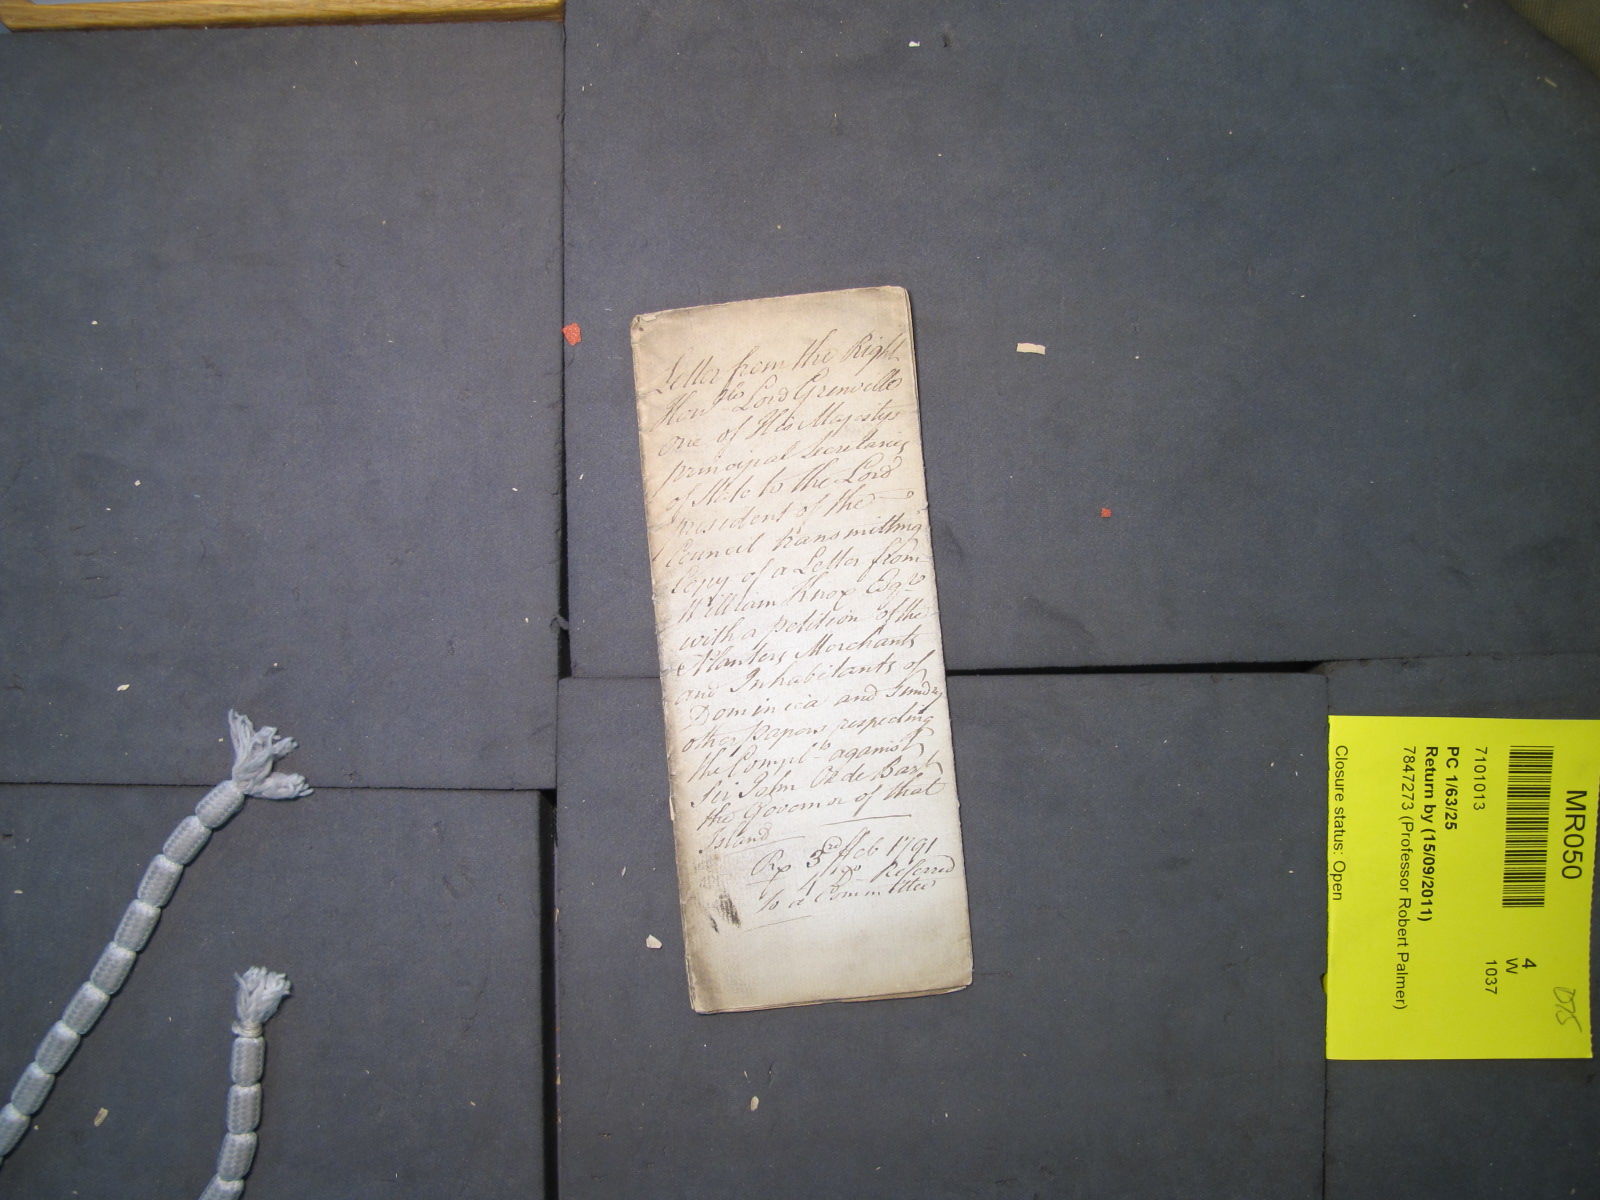 Letter from the Right
Honble Lord Grenville
one of His Majestys
principal Secretaries
of State to the Lord
President of the
Council transmitting
Copy of a Letter from
William Knox Esqr
with a petition of the
Planters Merchants
and Inhabitants of
Dominica and sundry
other papers respecting
the Complts against
Sir John Orde Bart
the Governor of that
Island
Rx 3rd Feb 1791
4 Referred
to a Committee
MR050
7101013
PC 1/63/25
Return by (15/09/2011)
7847273 (Professor Robert Palmer)
Closure status: Open
4
W
1037